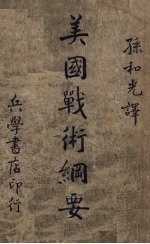 孫和光譯
美國戰術綱要
兵學書店印行